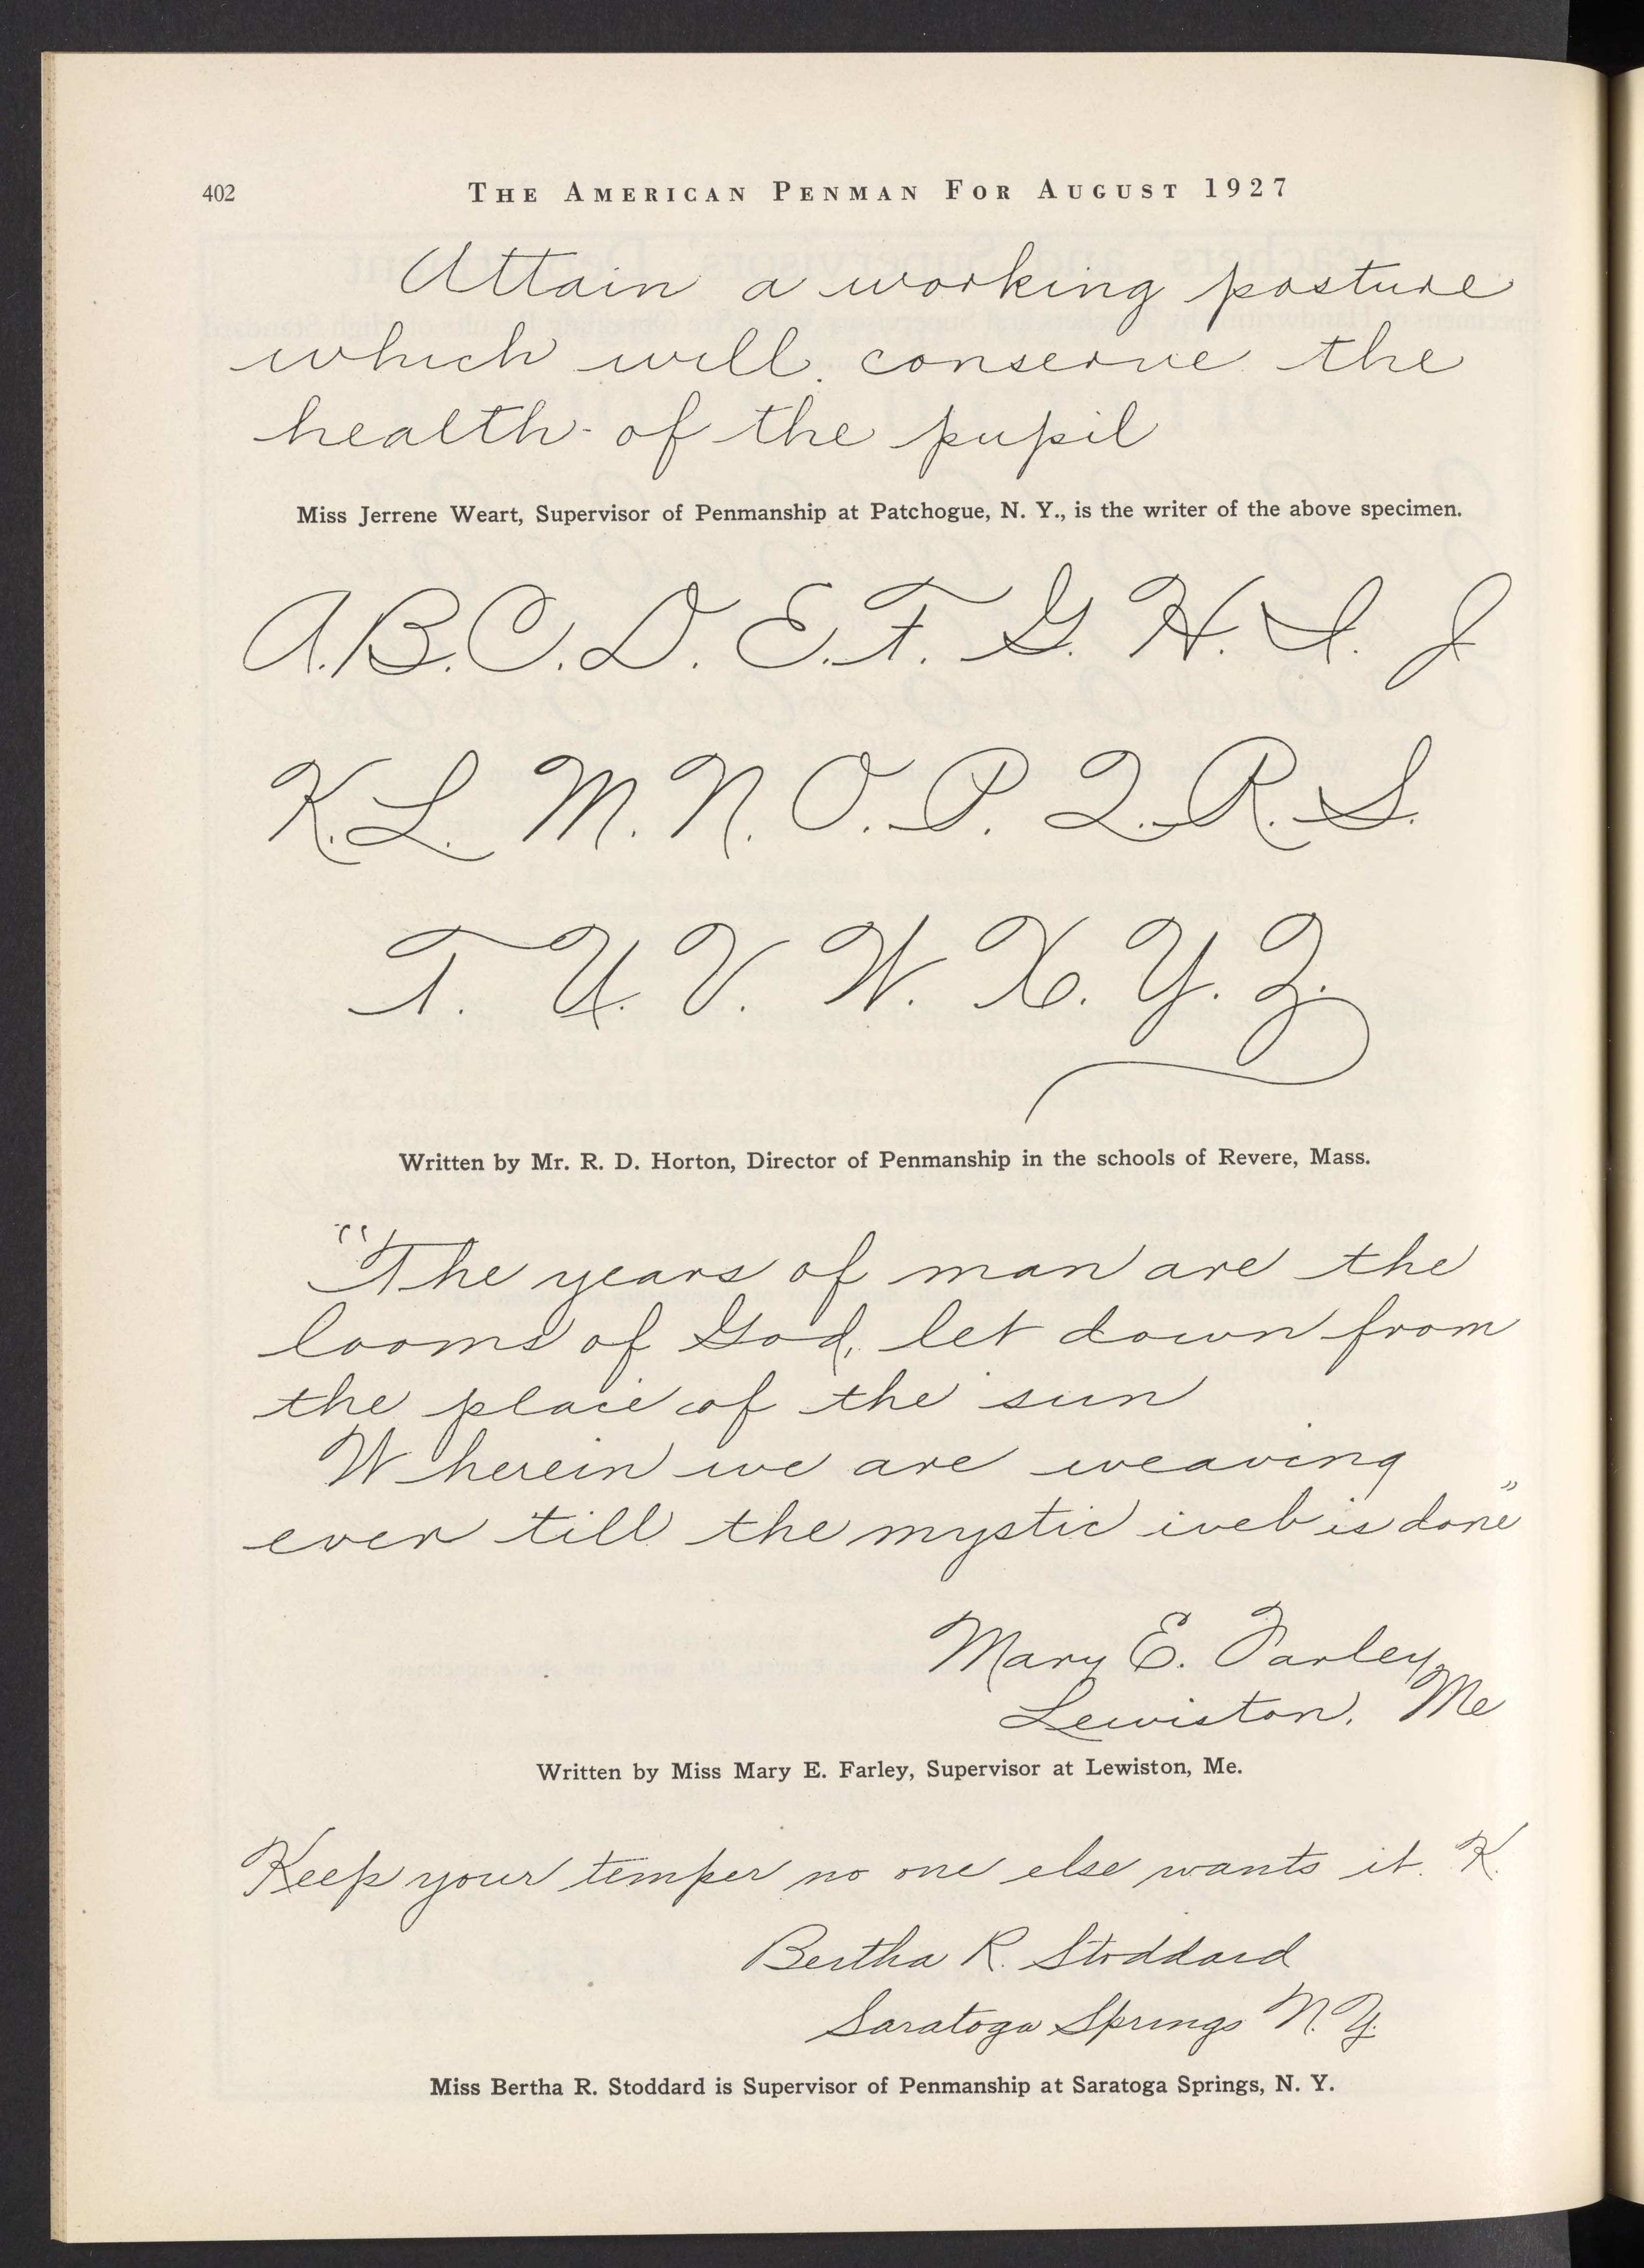 402
THE AMERICAN PENMAN FOR AUGUST 1927
Attain a working posture
which will conserve the
health of the pupil
Miss Jerrene Weart, Supervisor of Penmanship at Patchogue, N. Y., is the writer of the above specimen.
A. B. C. D. E. F. G. H. I. J
K. L. M. N. O. P. Q. R. S.
T. U. V. W. X. Y. Z.
Written by Mr. R. D. Horton, Director of Penmanship in the schools of Revere, Mass.
"The years of man are the
looms of God, let down from
the place of the sun
Wherein we are weaving
ever till the mystic web is done"
Mary E. Farley
Lewiston, Me
Written by Miss Mary E. Farley, Supervisor at Lewiston, Me.
Keep your temper no one else wants it. K.
Bertha R. Stoddard
Saratoga Springs N.Y.
Miss Bertha R. Stoddard is Supervisor of Penmanship at Saratoga Springs, N. Y.